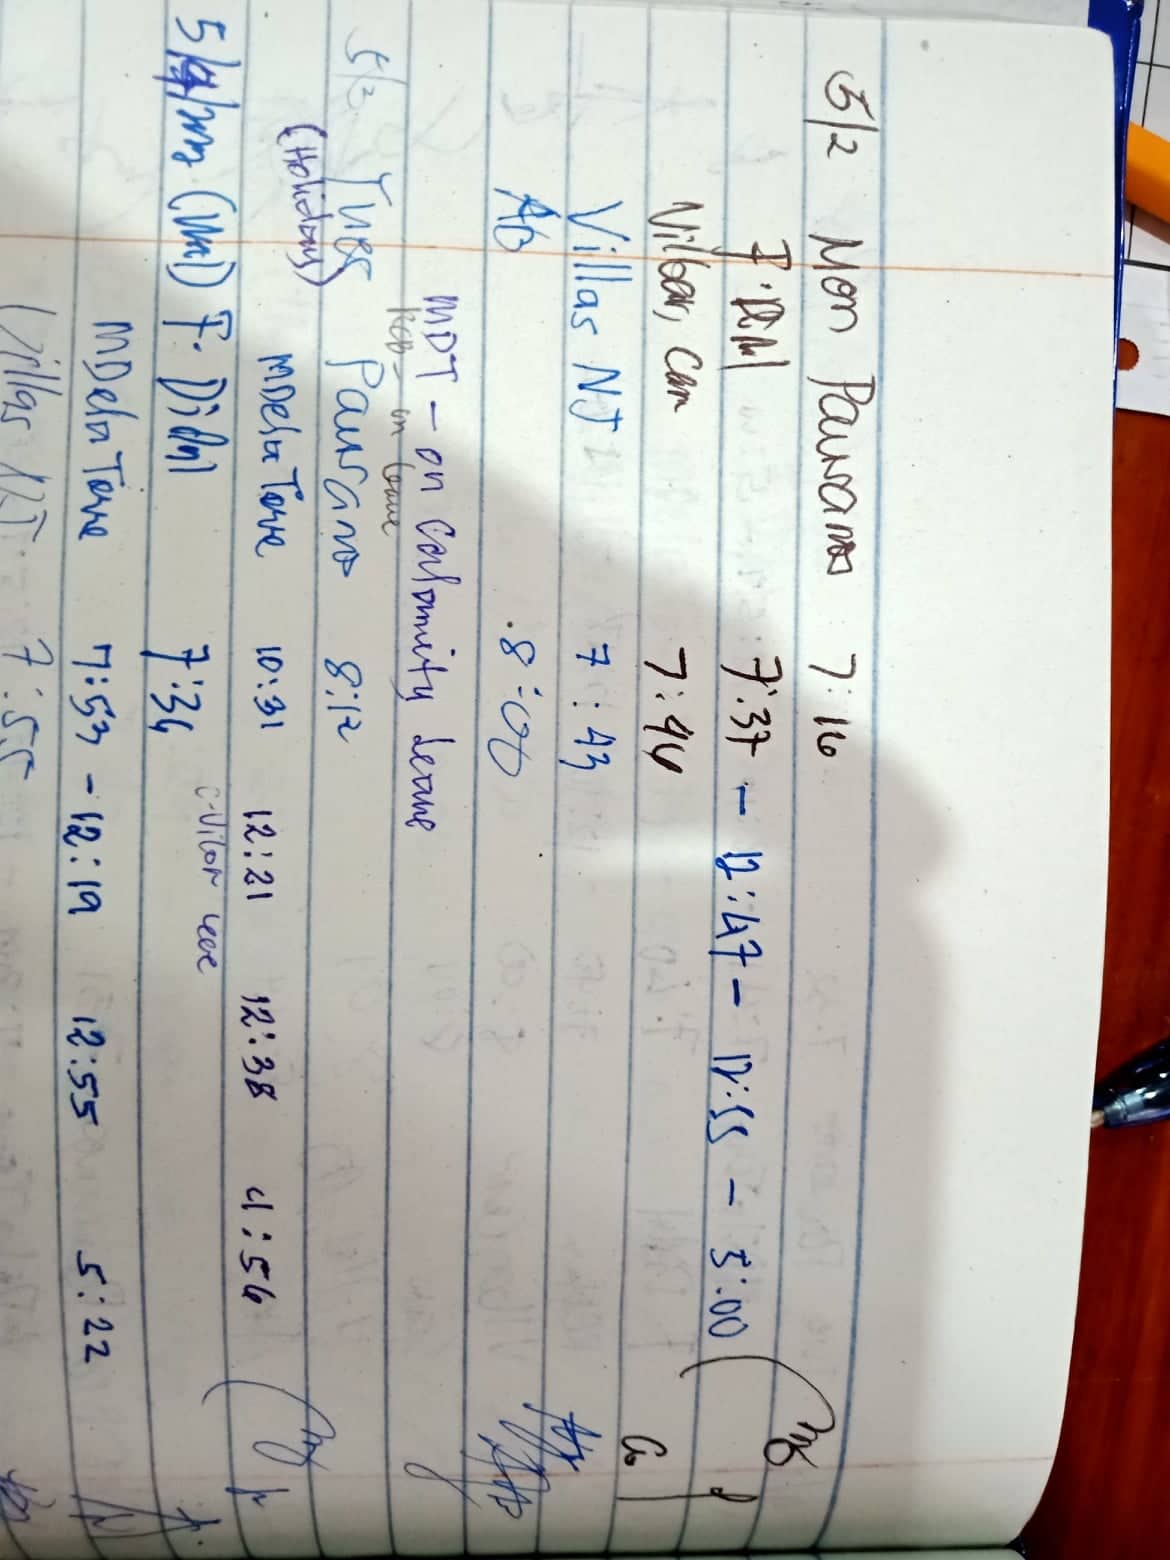 5/2 Mon Pausanos 7:16
F. Didul 7:37 - 12:47 - 12:55 - 5:00
Vilbar, Cam 7:44
Villas NJ 7:43
AB 8:00
MDT - on Calamity Leave
on leave
5/2 Tues Pausanos 8:12
(Holidays) MDela Torre 10:31 12:21 12:38 4:56
F. Didul 7:34
MDela Torre 7:53 - 12:19 12:55 5:22
Villas 7:55